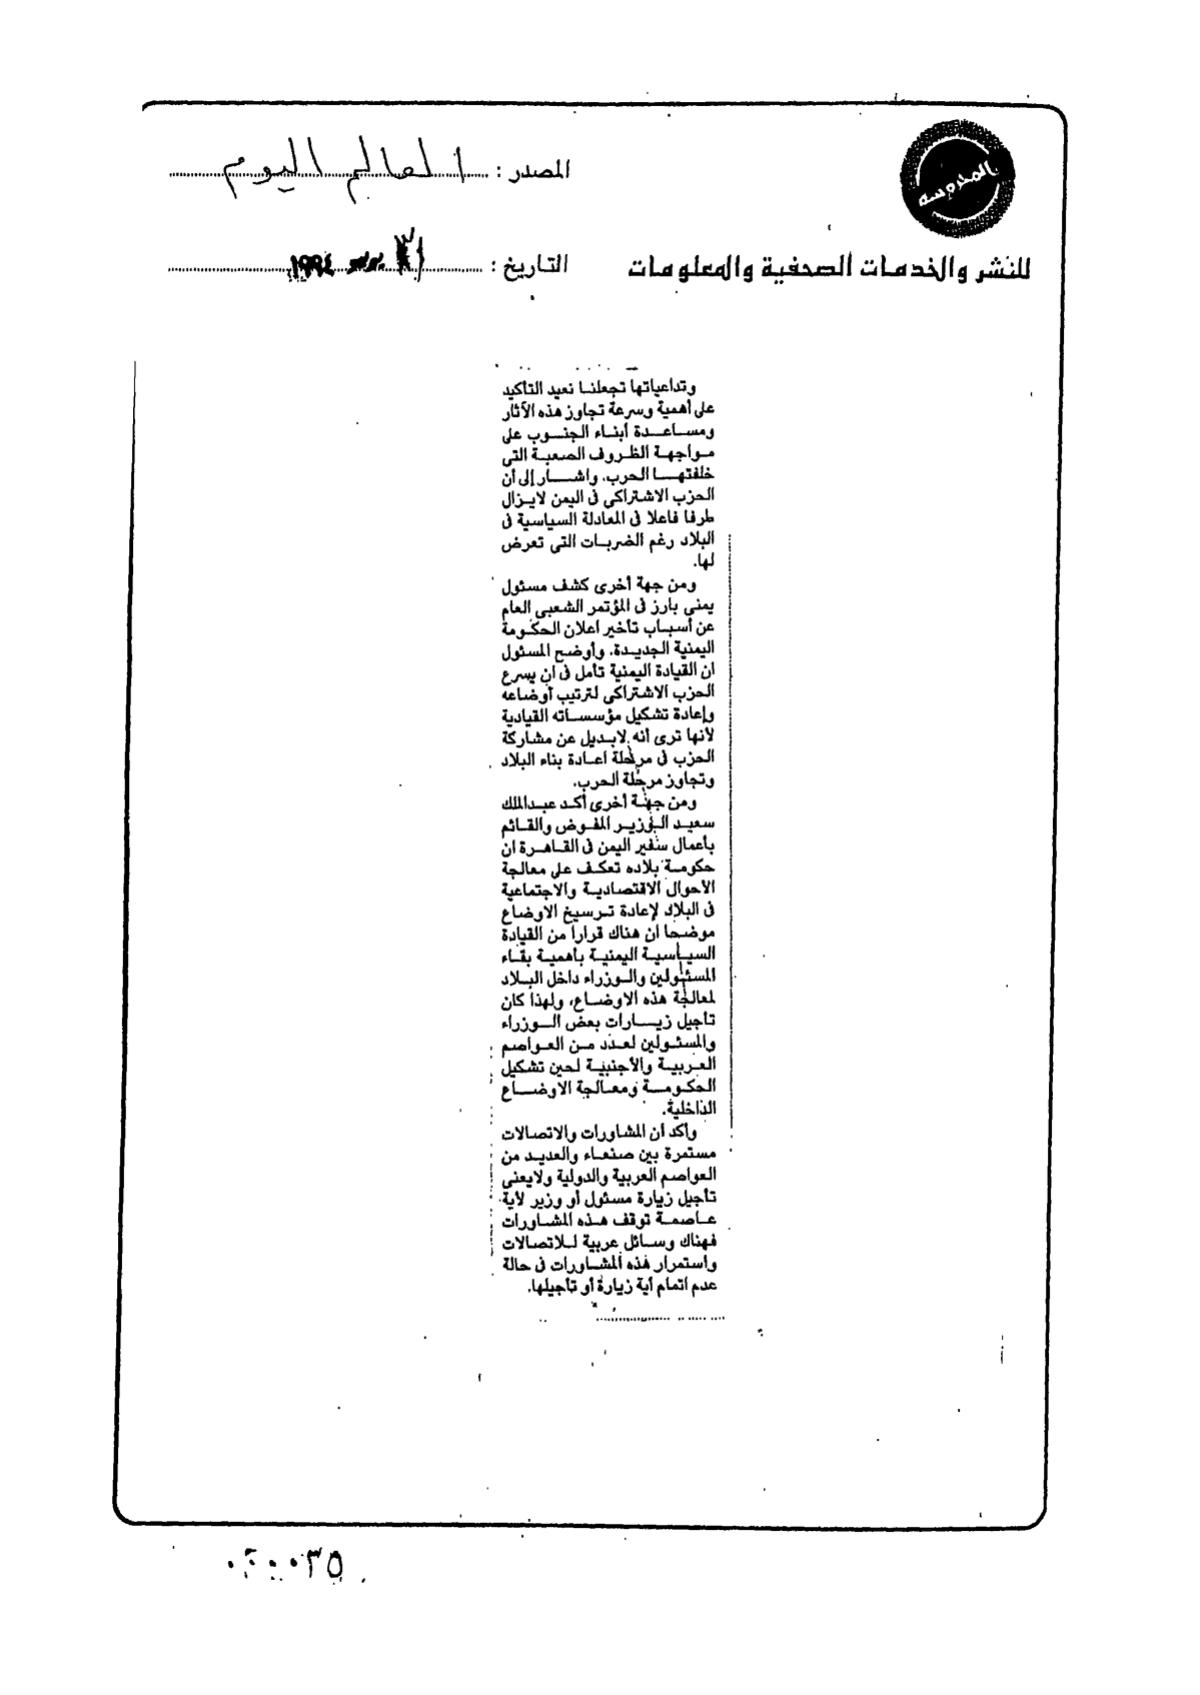 المحروسة
المصدر : العالم اليوم
للنشر والخدمات الصحفية والمعلومات
التاريخ : ٣١ ١٩٩٤
وتداعياتها تجعلنا نعيد التأكيد
على أهمية وسرعة تجاوز هذه الآثار
ومساعدة أبناء الجنوب على
مواجهة الظروف الصعبة التى
خلفتها الحرب. واشار إلى أن
الحزب الاشتراكى فى اليمن لايزال
طرفا فاعلا فى المعادلة السياسية فى
البلاد رغم الضربات التى تعرض
لها.
ومن جهة أخرى كشف مسئول
يمنى بارز فى المؤتمر الشعبى العام
عن أسباب تأخير اعلان الحكومة
اليمنية الجديدة. وأوضح المسئول
ان القيادة اليمنية تأمل فى ان يسرع
الحزب الاشتراكى لترتيب أوضاعه
وإعادة تشكيل مؤسساته القيادية
لأنها ترى أنه لابديل عن مشاركة
الحزب فى مرحلة اعادة بناء البلاد
وتجاوز مرحلة الحرب.
ومن جهة أخرى أكد عبدالملك
سعيد الوزير المفوض والقائم
بأعمال سفير اليمن فى القاهرة ان
حكومة بلاده تعكف على معالجة
الأحوال الاقتصادية والاجتماعية
فى البلاد لإعادة ترسيخ الاوضاع
موضحا ان هناك قرارا من القيادة
السياسية اليمنية بأهمية بقاء
المسئولين والوزراء داخل البلاد
لمعالجة هذه الاوضاع، ولهذا كان
تأجيل زيارات بعض الوزراء
والمسئولين لعدد من العواصم
العربية والأجنبية لحين تشكيل
الحكومة ومعالجة الاوضاع
الداخلية.
وأكد أن المشاورات والاتصالات
مستمرة بين صنعاء والعديد من
العواصم العربية والدولية ولايعنى
تأجيل زيارة مسئول أو وزير لأية
عاصمة توقف هذه المشاورات
فهناك وسائل عربية للاتصالات
واستمرار هذه المشاورات فى حالة
عدم اتمام أية زيارة أو تأجيلها.